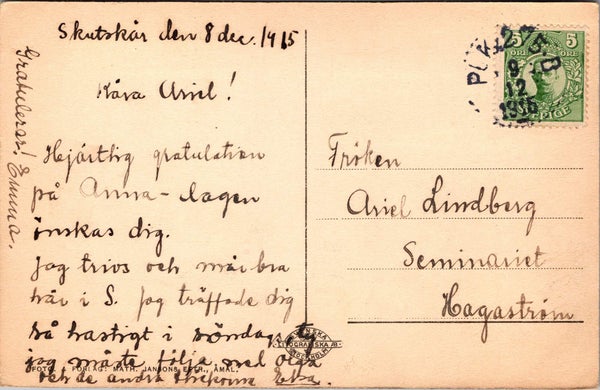 Skutskär den 8 dec. 1915
Kära Ariel!
Hjärtlig gratulation
på Anna-dagen
önskas dig.
Jag trivs och mår bra
här i S. Jag träffade dig
så hastigt i söndag,
jag måste följa med Olga
och de andra Ebba.
Gratulerar! Emma.
FOTO. FÖRLAG: MATH. JANSONS EFTR., ÅMÅL.
5 5
ÖRE
SVERIGE
PKXP 275.D
9
12
1915
Fröken
Ariel Lindberg
Seminariet
Hagaström